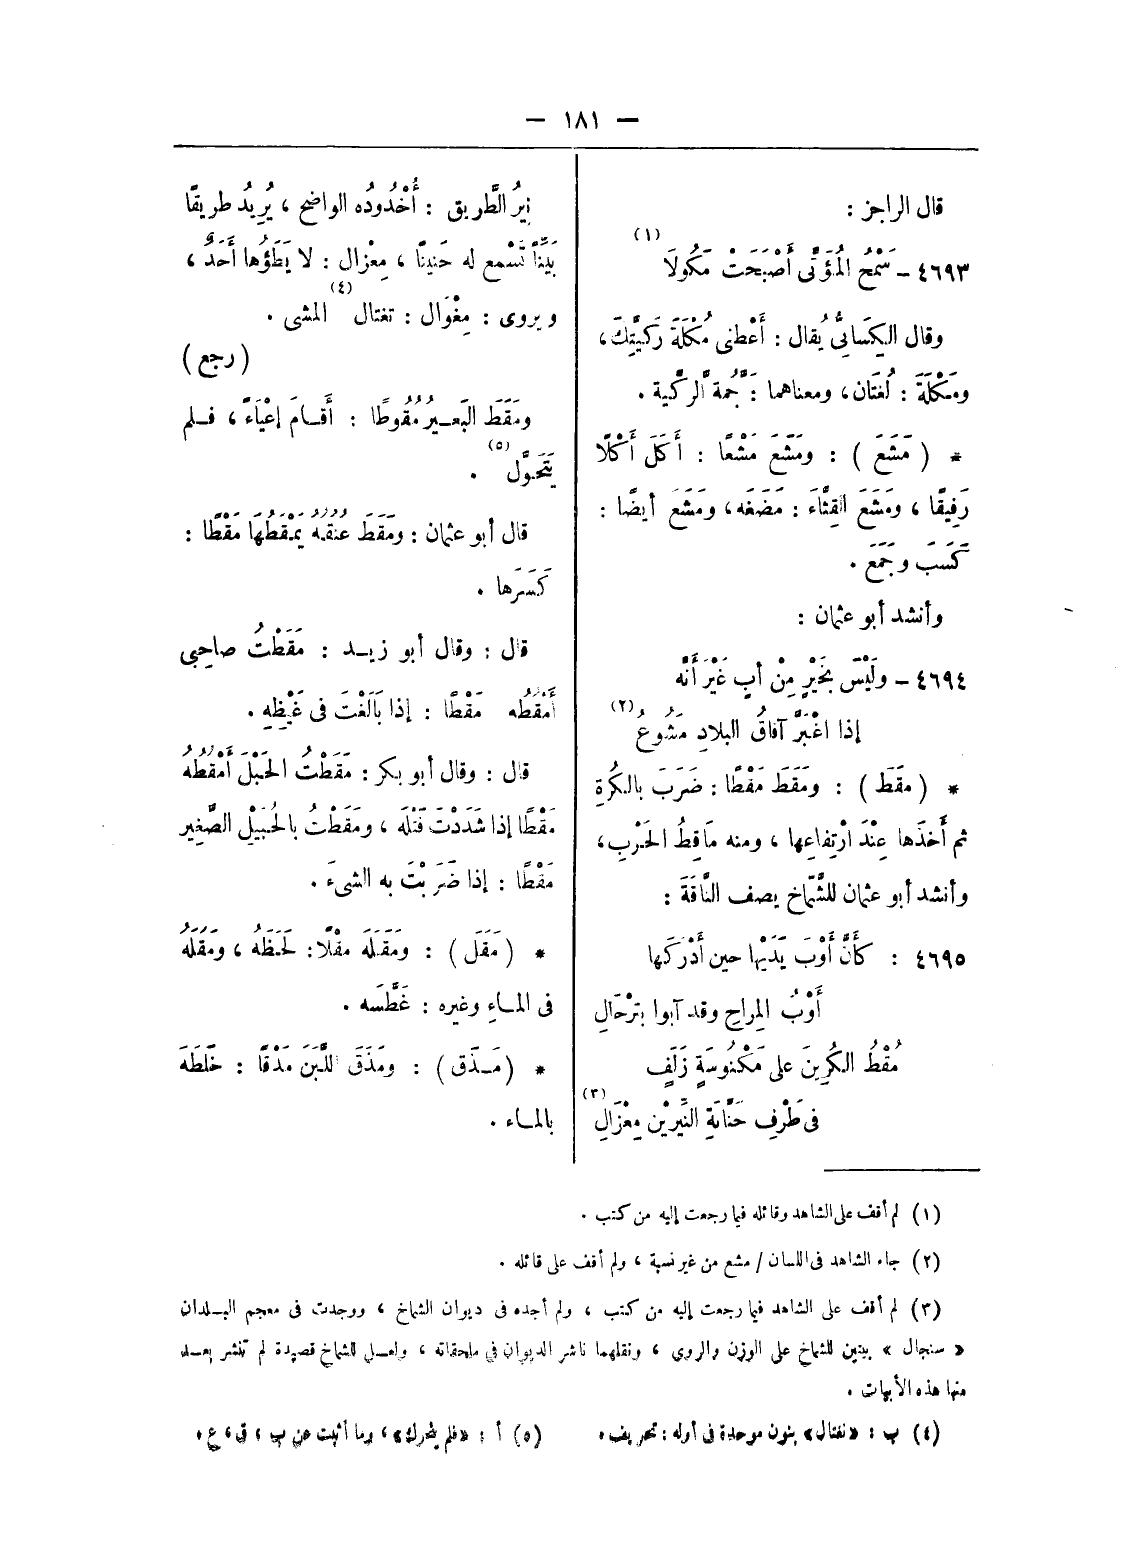 — ١٨١ —
قال الراجز :
٤٦٩٣ – سَمْحُ المُؤَتَّى أَصْبَحَتْ مَكُولَا (١)
وقال الكِسَائِىُّ يُقال : أَعْطِنى مُكْلَةَ رَكِيَّتِكَ ،
ومَكْلَةَ : لُغَتَان ، ومعناهما : جَُمَّة الرَّكِية .
* ( مَشَعَ ) : ومَشَعَ مَشْعًا : أَكَلَ أَكْلًا
رَفِيقًا ، ومَشَعَ القِثَّاءَ : مَضَغَه ، ومَشَعَ أيضًا :
كَسَبَ وجَمَعَ .
وأنشد أبو عثمان :
٤٦٩٤ – ولَيْسَ بِخَيْرٍ مِنْ أبٍ غَيْرَ أَنَّه
إذا اغْبَرَّ آفاقُ البلادِ مَشُوعُ (٢)
* ( مقَط ) : ومَقَط مَقْطًا : ضَرَبَ بالكُرةِ
ثم أَخَذَها عِنْدَ ارْتِفاعِها ، ومنه مَاقِطُ الحَرْبِ ،
وأنشد أبو عثمان للشَّمَّاخ يصف النَّاقَةَ :
٤٦٩٥ : كأَنَّ أَوْبَ يَدَيْها حين أَدْرَكَها
أَوْبُ المِراحِ وقد آبوا بِتَرْحَالِ
مُقْطُ الكُرِينَ على مَكْنُوسَةٍ زَلَفٍ
فى طَرْفِ حَنَّانَةِ النِّيرَيْن مِعْزَالِ (٣)
نِيرُ الطَّريق : أُخْدُودُه الواضح ، يُريدُ طريقًا
بَيِّنًا تَسْمع له حَنِينًا ، مِعْزال : لا يَطَؤُها أَحَدٌ ،
ويروى : مِغْوَال : تغتال (٤) المشى .
( رجع )
ومَقَطَ البَعـيرُ مُقُوطًا : أَقـامَ إعْيَاءً ، فـلم
يَتَحَوَّل (٥) .
قال أبو عثمان : ومَقَطَ عنقه يَمْقُطُها مَقْطًا :
كَسَرَها .
قال : وقال أبو زيـد : مَقَطْتُ صاحِبى
أَمْقُطُه مَقْطًا : إذا بَالَغْتَ فى غَيْظِهِ .
قال : وقال أبو بكر : مَقَطْتُ الحَبْلَ أَمْقُطُهُ
مَقْطًا إذا شَدَدْتَ فَتْلَه ، ومَقَطْتُ بالحُبَيْلِ الصَّغِير
مَقْطًا : إذا ضَرَبْتَ به الشىءَ .
* ( مَقَل ) : ومَقَلَه مقْلًا : لَحَظَهُ ، ومَقَلَهُ
فى المـاءِ وغيره : غَطَّسَه .
* ( مَـذَق ) : ومَذَقَ اللَّبَنَ مَذْقًا : خَلَطَهُ
بالمـاء .
(١) لم أقف على الشاهد وقائله فيما رجعت إليه من كتب .
(٢) جاء الشاهد فى اللسان / مشع من غير نسبة ، ولم أقف على قائله .
(٣) لم أقف على الشاهد فيما رجعت إليه من كتب ، ولم أجده فى ديوان الشماخ ، ووجدت فى معجم البـلدان
« سنجال » بيتين للشماخ على الوزن والروى ، ونقلهما ناشر الديوان فى ملحقاته ، ولعـل للشماخ قصيدة لم تنشر بعـد
منها هذه الأبيات .
(٤) ب : «نغتال» بنون موحدة فى أوله : تحريف .
(٥) أ : «فلم يتحرك» ، وما أثبت عن ب ، ق ، ع .